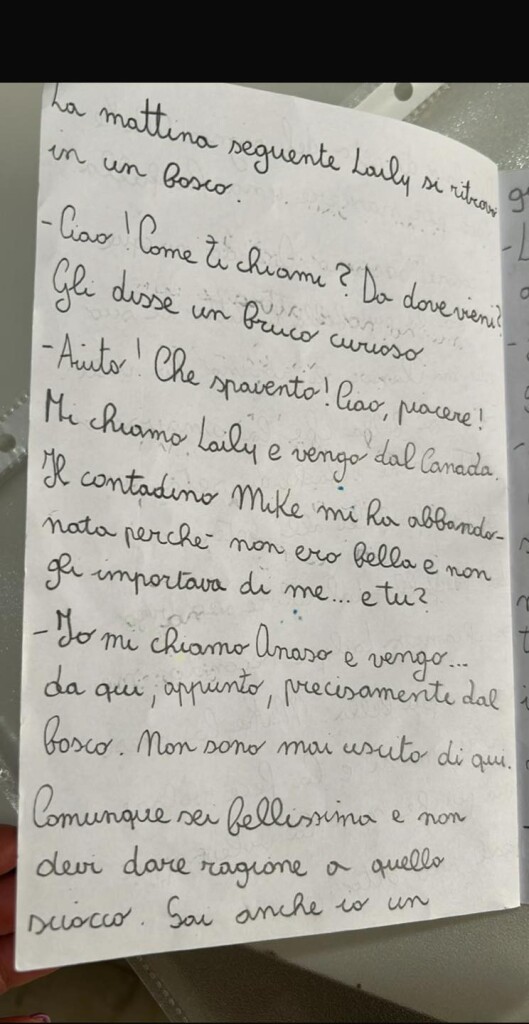 La mattina seguente Laily si ritrovò
in un bosco.
-Ciao! Come ti chiami? Da dove vieni?
Gli disse un bruco curioso
-Aiuto! Che spavento! Ciao, piacere!
Mi chiamo Laily e vengo dal Canada.
Il contadino Mike mi ha abbando-
nata perché non ero bella e non
gli importava di me... e tu?
-Io mi chiamo Anaso e vengo...
da qui, appunto, precisamente dal
bosco. Non sono mai uscito di qui.
Comunque sei bellissima e non
devi dare ragione a quello
sciocco. Sai anche io un